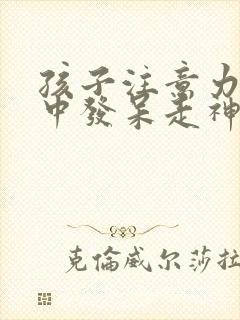 孩子注意力
中發呆走神
克倫威尔莎拉